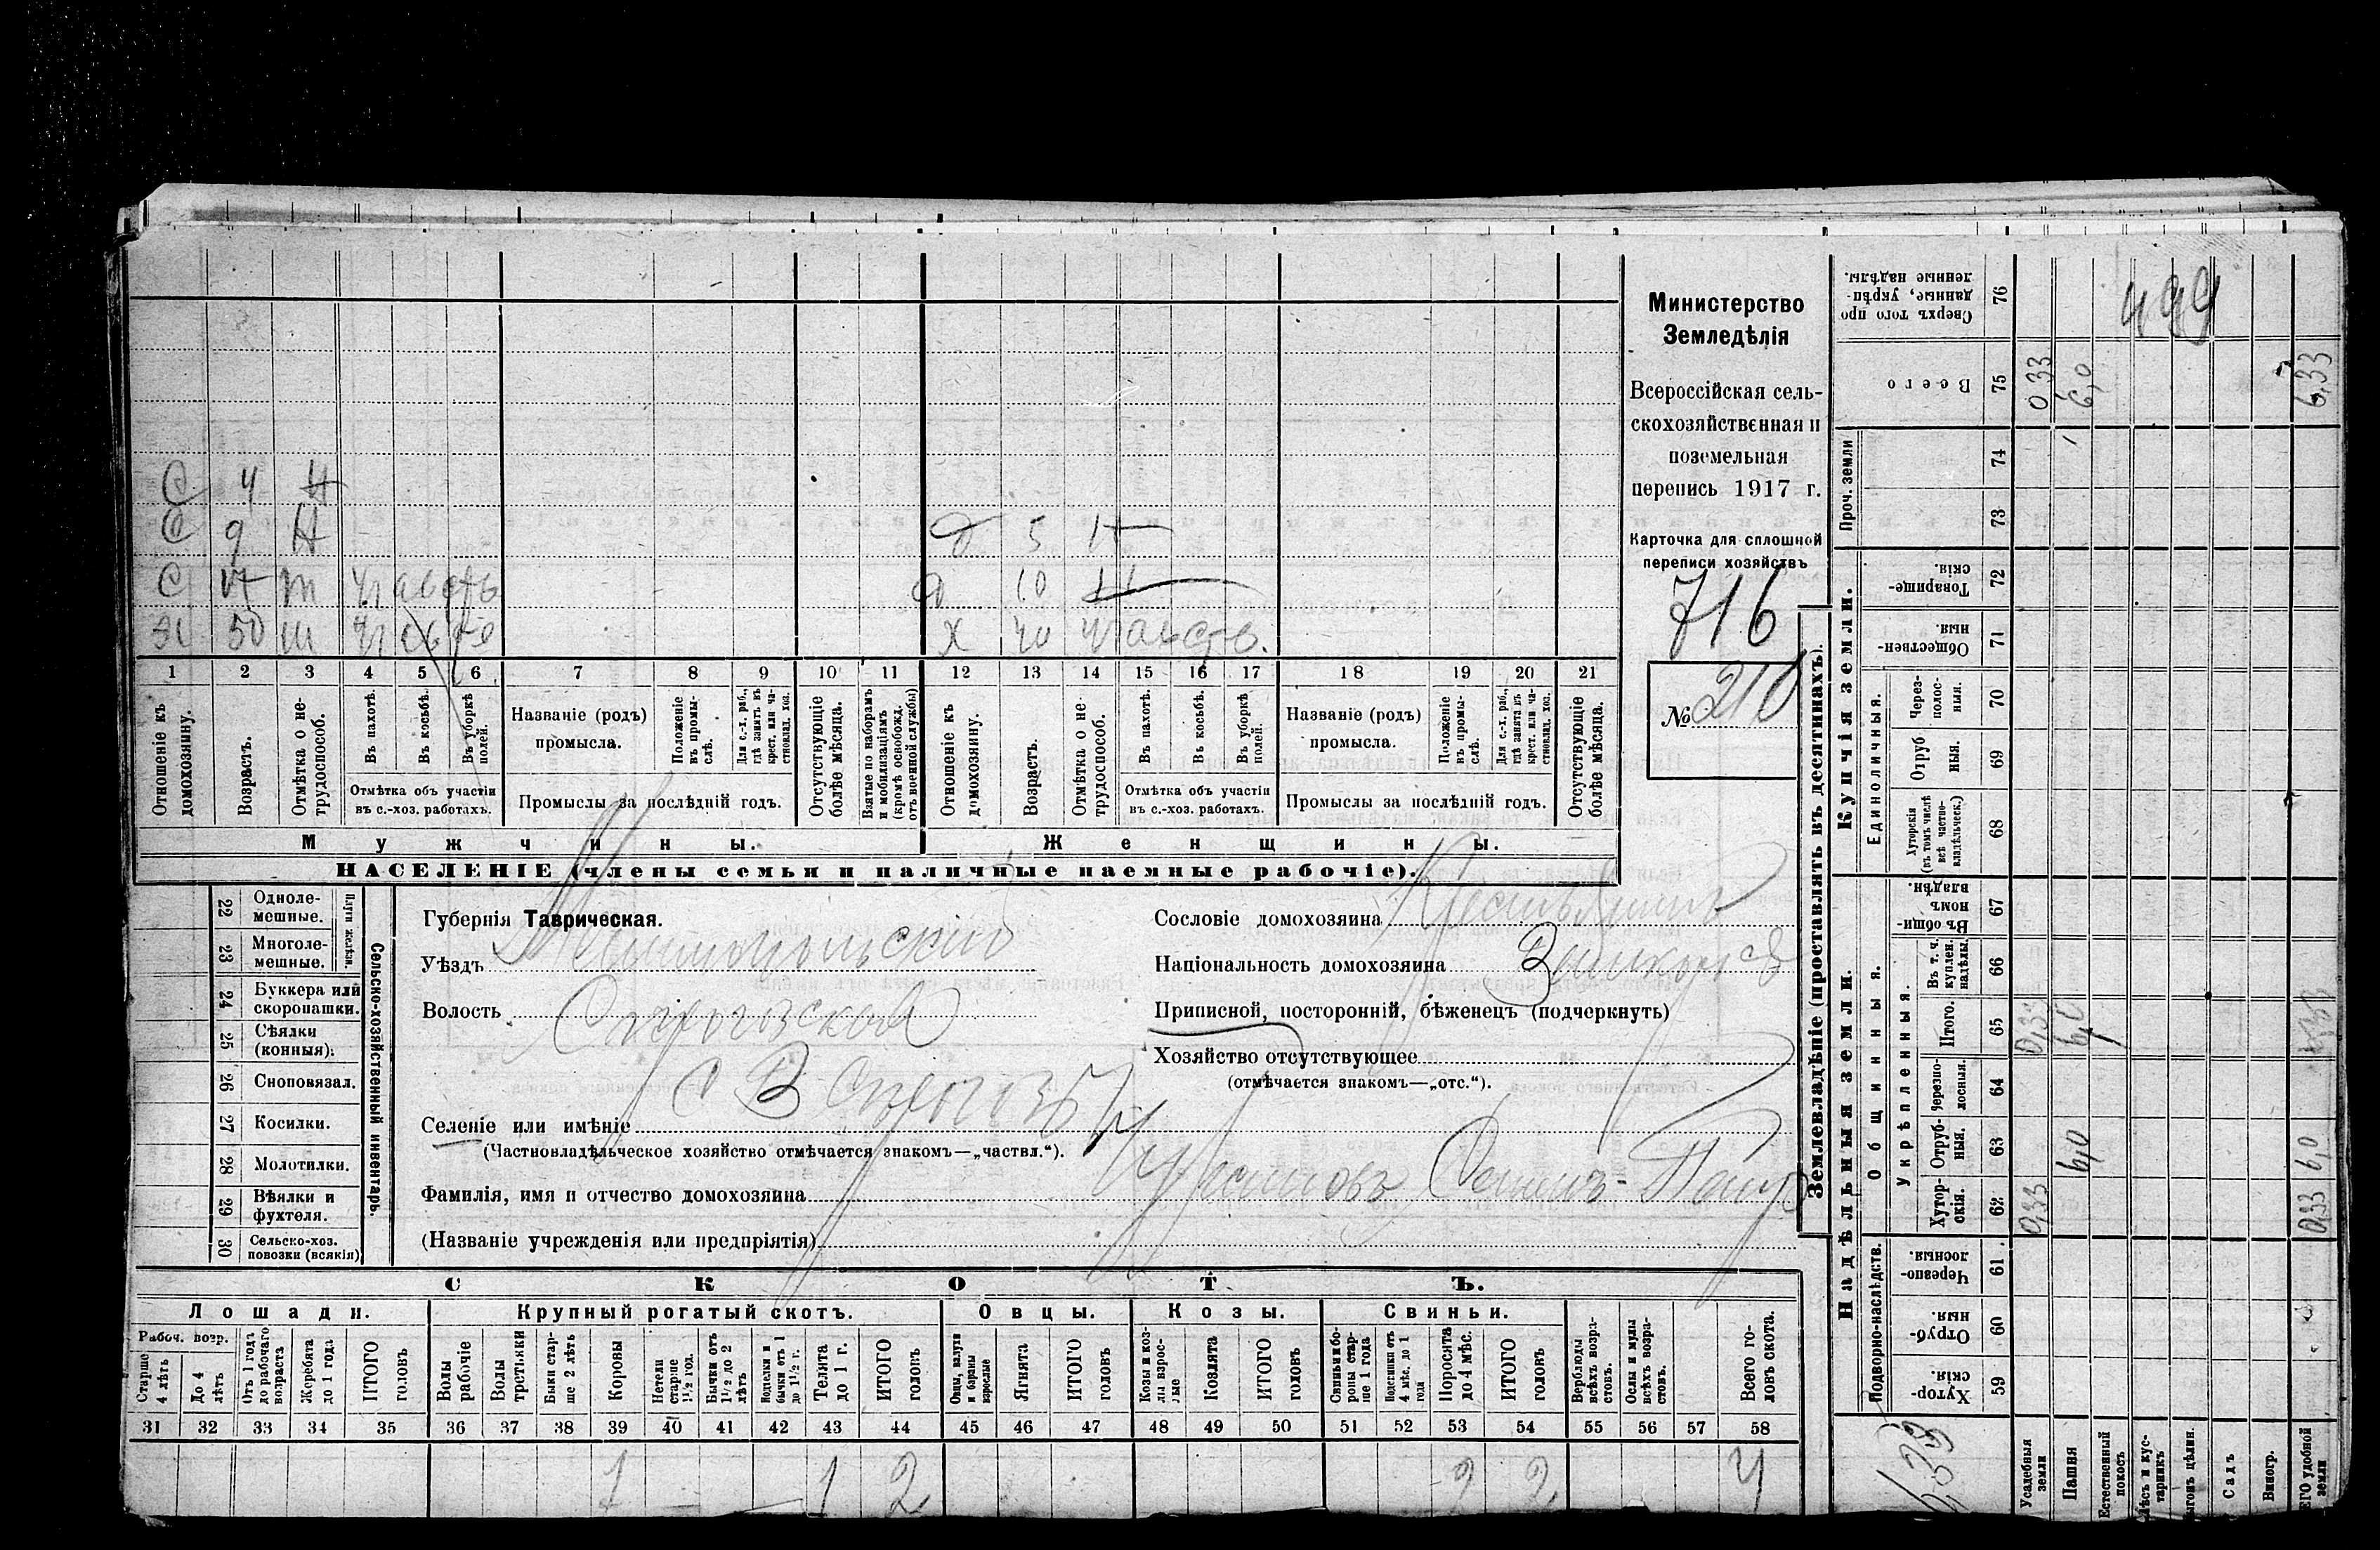 С 4 Н
С 9 Н
Д 5 Н
С 17 т участв
Д 10 Н
Х 50 участв
Х 40 участв.
1 2 3 4 5 6 7 8 9 10 11 12 13 14 15 16 17 18 19 20 21
Отношеніе къ домохозяину.
Возрастъ.
Отмѣтка о нетрудоспособ.
Въ пахотѣ.
Въ косьбѣ.
Въ уборкѣ полей.
Отмѣтка объ участіи въ с.-хоз. работахъ.
Названіе (родъ) промысла.
Положеніе въ промыслѣ.
Для с.-х. раб., гдѣ занятъ въ крест. или частновлад. хоз.
Промыслы за послѣдній годъ.
Отсутствующіе болѣе мѣсяца.
Взятые по наборамъ и мобилизаціямъ (кромѣ освобожд. отъ военной службы)
Отношеніе къ домохозяину.
Возрастъ.
Отмѣтка о нетрудоспособ.
Въ пахотѣ.
Въ косьбѣ.
Въ уборкѣ полей.
Отмѣтка объ участіи въ с.-хоз. работахъ.
Названіе (родъ) промысла.
Положеніе въ промыслѣ.
Для с.-х. раб., гдѣ занята въ крест. или частновлад. хоз.
Промыслы за послѣдній годъ.
Отсутствующіе болѣе мѣсяца.
Мужчины.
Женщины.
НАСЕЛЕНІЕ (члены семьи и наличные наемные рабочіе).
Министерство
Земледѣлія
Всероссійская сель-
скохозяйственная и
поземельная
перепись 1917 г.
Карточка для сплошной
переписи хозяйствъ
716
№ 210
22 Однолемешные.
23 Многолемешные.
Плуги желѣзн.
24 Буккера или скоропашки.
25 Сѣялки (конныя).
26 Сноповязал.
27 Косилки.
28 Молотилки.
29 Вѣялки и фухтеля.
30 Сельско-хоз. повозки (всякія)
Сельско-хозяйственный инвентарь.
Губернія Таврическая.
Уѣздъ Мелитопольскій
Волость
Селеніе или имѣніе
(Частновладѣльческое хозяйство отмѣчается знакомъ—„частвл.“).
Фамилія, имя и отчество домохозяина
(Названіе учрежденія или предпріятія)
Сословіе домохозяина Крестьянинъ
Національность домохозяина
Приписной, посторонній, бѣженецъ (подчеркнуть)
Хозяйство отсутствующее
(отмѣчается знакомъ—„отс.“).
СКОТЪ.
Лошади. Крупный рогатый скотъ. Овцы. Козы. Свиньи.
Рабоч. возр.
Старше 4 лѣтъ
До 4 лѣтъ
Отъ 1 года до рабочаго возраста
Жеребята до 1 года
ИТОГО головъ
Волы рабочіе
Волы третьяки
Быки старше 2 лѣтъ
Коровы
Нетели старше 1½ год.
Бычки отъ 1½ до 2 лѣтъ
Подтелки и бычки отъ 1 до 1½ г.
Телята до 1 г.
ИТОГО головъ
Овцы, валухи и бараны взрослые
Ягнята
ИТОГО головъ
Козы и козлы взрослые
Козлята
ИТОГО головъ
Свиньи и боровы старше 1 года
Подсвинки отъ 4 мѣс. до 1 года
Поросята до 4 мѣс.
ИТОГО головъ
Верблюды всѣхъ возрастовъ.
Ослы и мулы всѣхъ возрастовъ.
Всего головъ скота.
31 32 33 34 35 36 37 38 39 40 41 42 43 44 45 46 47 48 49 50 51 52 53 54 55 56 57 58
1 1 2 2 2 4
Землевладѣніе (проставлять въ десятинахъ).
Купчія земли.
Надѣльныя земли.
Проч. земли
Единоличныя.
Общинныя.
Укрѣпленныя.
Подворно-наслѣдств.
Сверхъ того проданные, укрѣпленные надѣлы. 76
Всего 75
74
73
Товарищескія. 72
Общественныя. 71
Черезполосныя. 70
Отрубныя. 69
Хуторскія (въ томъ числѣ всѣ частновладѣльческ.) 68
Въ общинномъ владѣн. 67
Въ т. ч. куплен. надѣлы. 66
Итого. 65
Черезполосныя. 64
Отрубныя. 63
Хуторскія. 62
Черезполосныя. 61
Отрубныя. 60
Хуторскія. 59
499
0,33 6,0 6,33
0,33 6,0
6,0 6,0
0,33 0,33
6,33
Усадебныя земли
Пашня
Естественный покосъ
Садъ
Виногр.